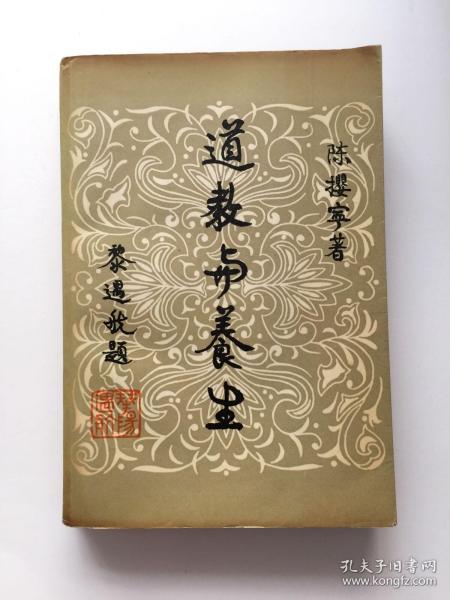 陈撄宁著
道教与養生
黎遇航題
孔夫子旧书网
www.kongfz.com